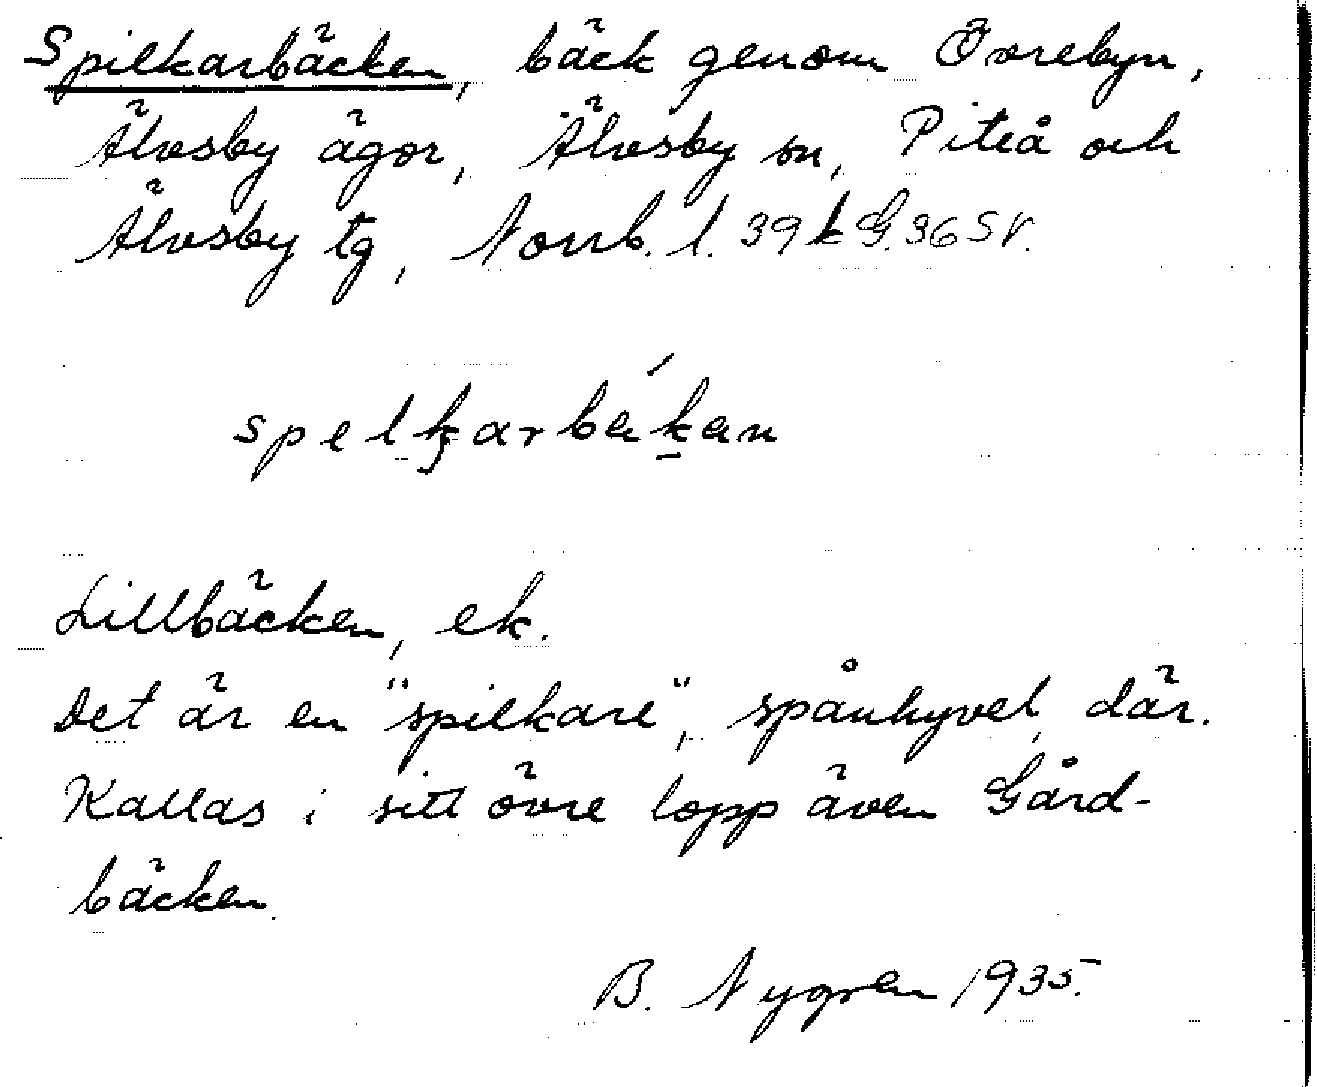 Spilkarbäcken, bäck genom Övrebyn,
Älvsby ägor, Älvsby sn, Piteå och
Älvsby tg, Norrb. l. 39k G.36SV.
Lillbäcken, ek.
Det är en "spilkare", spånhyvel, där.
Kallas i sitt övre lopp även Gård-
bäcken.
B. Nygren 1935.